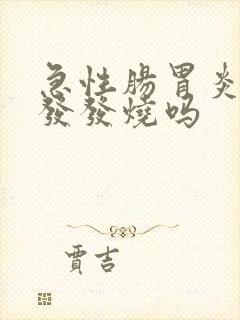 急性腸胃炎
發發燒吗
賈吉